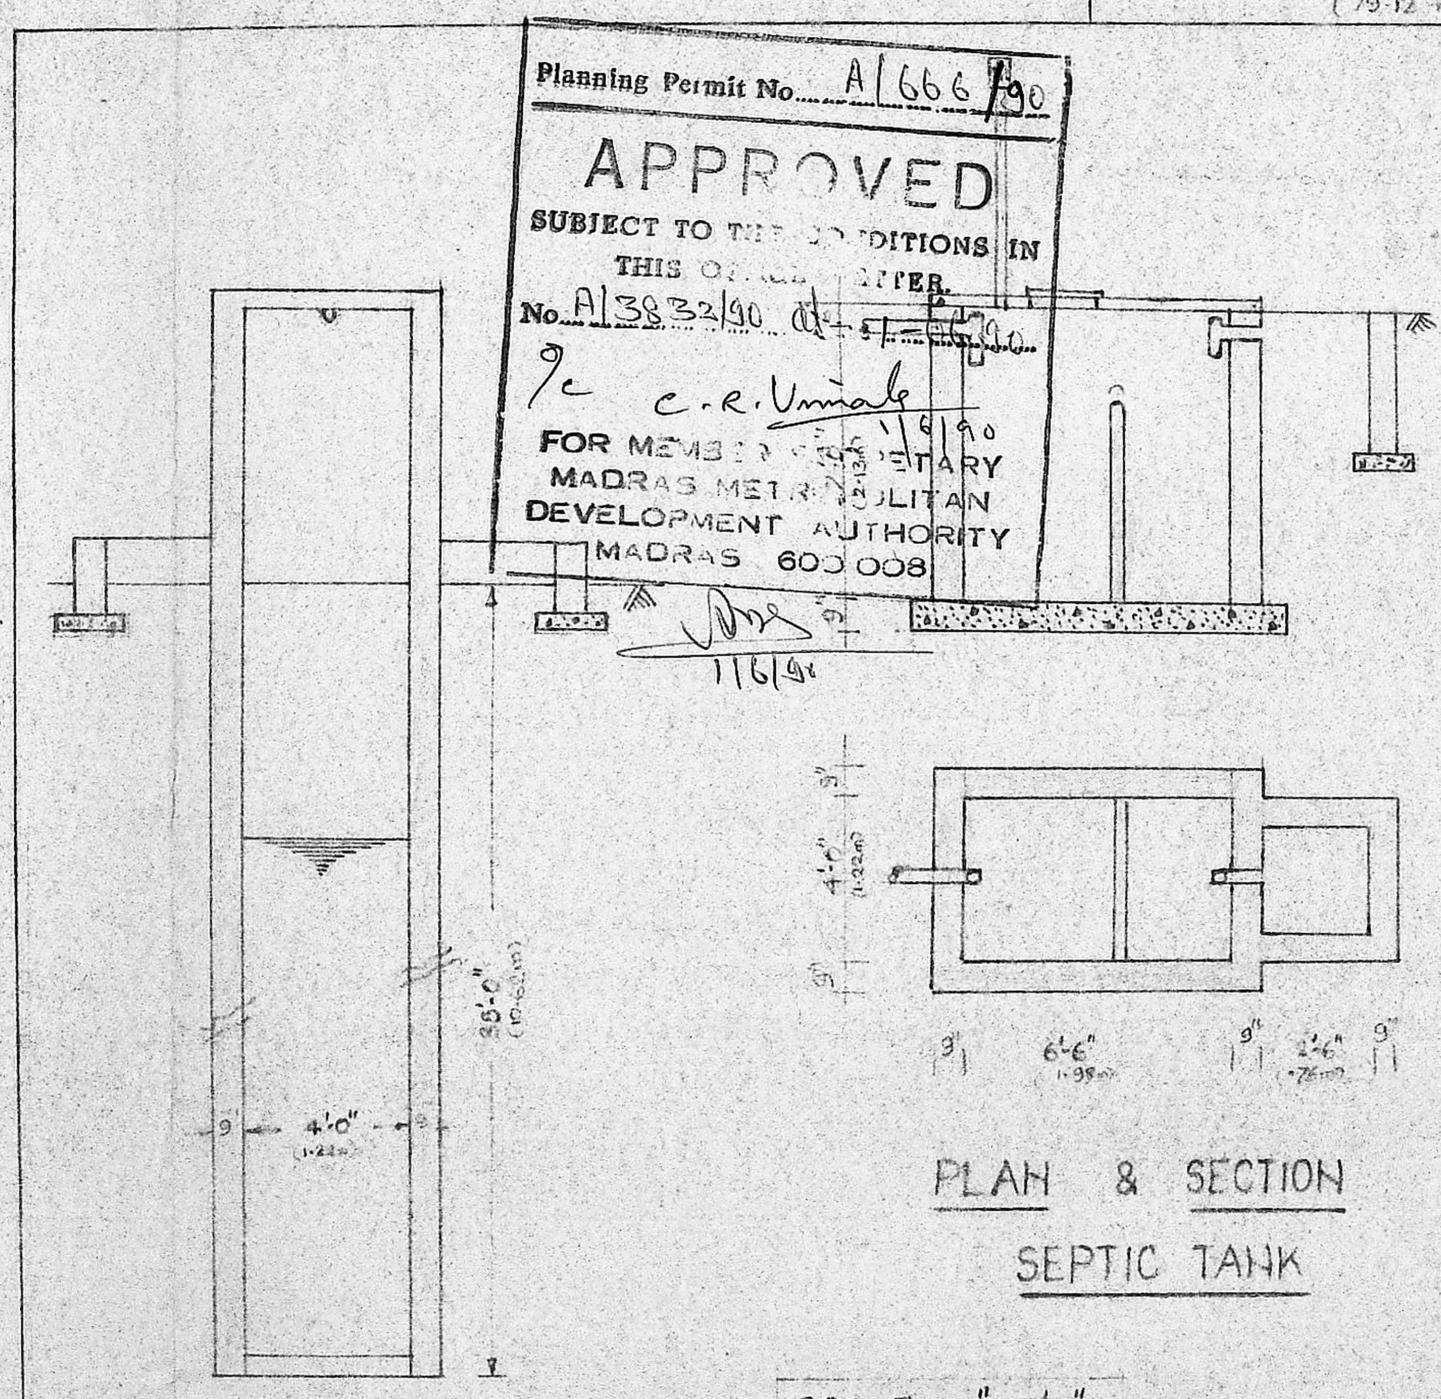 Planning Permit No. A/666/90
APPROVED
SUBJECT TO THE CONDITIONS IN
THIS OFFICE LETTER.
No. A/3832/90
C.R. Uma
1/6/90
FOR MEMBER SECRETARY
MADRAS METROPOLITAN
DEVELOPMENT AUTHORITY
MADRAS 600 008
1/6/90
9"
9"
4'-0"
(1.22m)
9"
35'-0"
9" 6'-6" 9" 2'-6" 9"
(1.98m) (.76m)
9" 4'-0" 9"
(1.22m)
PLAN & SECTION
SEPTIC TANK